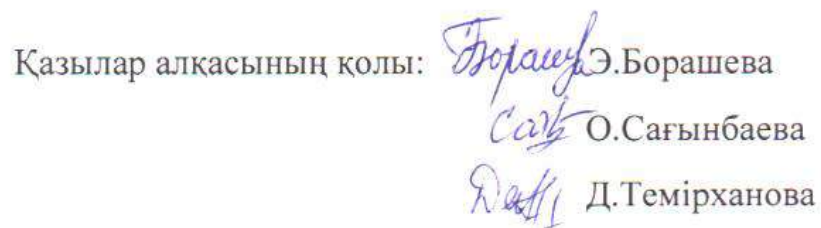 Қазылар алқасының қолы: Э.Борашева
О.Сағынбаева
Д.Темірханова